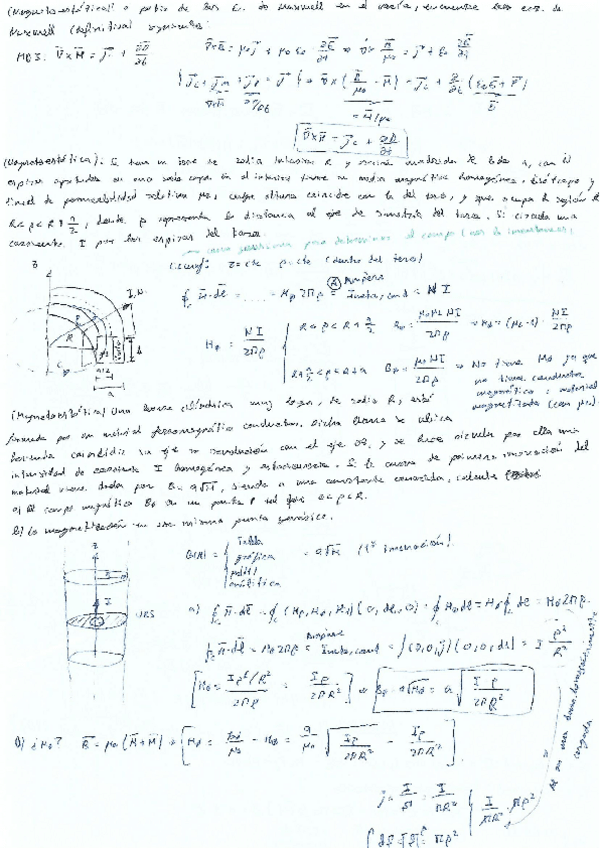 (Magnetostática) a partir de las Ec. de Maxwell en el vacío, encuentre las ecs. de
Maxwell
MD3: ∇×H̄ = J̄c + ∂D̄/∂t
∇×B̄ = μ0 J̄ + μ0 ε0 ∂Ē/∂t ⇒ ∇× B̄/μ0 = J̄ + ε0 ∂Ē/∂t
∇×(B̄/μ0 - M̄) = J̄c + ∂/∂t (ε0Ē + P̄)
∇×H̄ = J̄c + ∂D̄/∂t
(Magnetostática): Se tiene un toro de radio interior R y sección cuadrada de lado a, con N
espiras apretadas en una sola capa. En el interior tiene un medio magnético homogéneo, isótropo y
lineal de permeabilidad relativa μr, cuya altura coincide con la del toro, y que ocupa la región de
R<ρ<R+a/2, donde ρ representa la distancia al eje de simetría del toro. Si circula una
corriente I por las espiras del toro
z=cte ρ=cte (dentro del toro)
∮ H̄·dl̄ = ...... = Hφ 2πρ = Ampère = NI
Hφ = NI/2πρ
R<ρ<R+a/2 Bφ = μ0μr NI/2πρ ⇒ Mφ = (μr-1) NI/2πρ
R+a/2<ρ<R+a Bφ = μ0 NI/2πρ ⇒ No tiene Mφ ya que
no tiene conductor
magnético o material
magnetizado (con μr).
(Magnetostática) Una barra cilíndrica muy larga, de radio R, está
formada por un material ferromagnético conductor. Dicha barra se ubica
haciendo coincidir su eje de revolución con el eje OZ, y se hace circular por ella una
intensidad de corriente I homogénea y estacionaria. Si la curva de primera imanación del
material viene dada por B=a√H, siendo a una constante conocida, calcule
a) el campo magnético Bφ en un punto P tal que 0<ρ<R.
b) La magnetización en ese mismo punto genérico.
B(H) = { tabla
gráfica
analítica = a√H (1ª imanación)
a) ∮ H̄·dl̄ = ∮ (Hρ,Hφ,Hz)(0,dl,0) = ∮ Hφ dl = Hφ ∮ dl = Hφ 2πρ
∮ H̄·dl̄ = Hφ 2πρ = Ampère = ∫(0,0,j)(0,0,ds) = I ρ²/R²
Hφ = Iρ²/R² / 2πρ = Iρ/2πR² ⇒ Bφ = a√Hφ = a √(Iρ/2πR²)
b) ¿Mφ? B̄ = μ0(H̄+M̄) ⇒ Mφ = Bφ/μ0 - Hφ = a/μ0 √(Iρ/2πR²) - Iρ/2πR²
j = I/S = I/πR²
I/πR² · πρ²
= πρ²